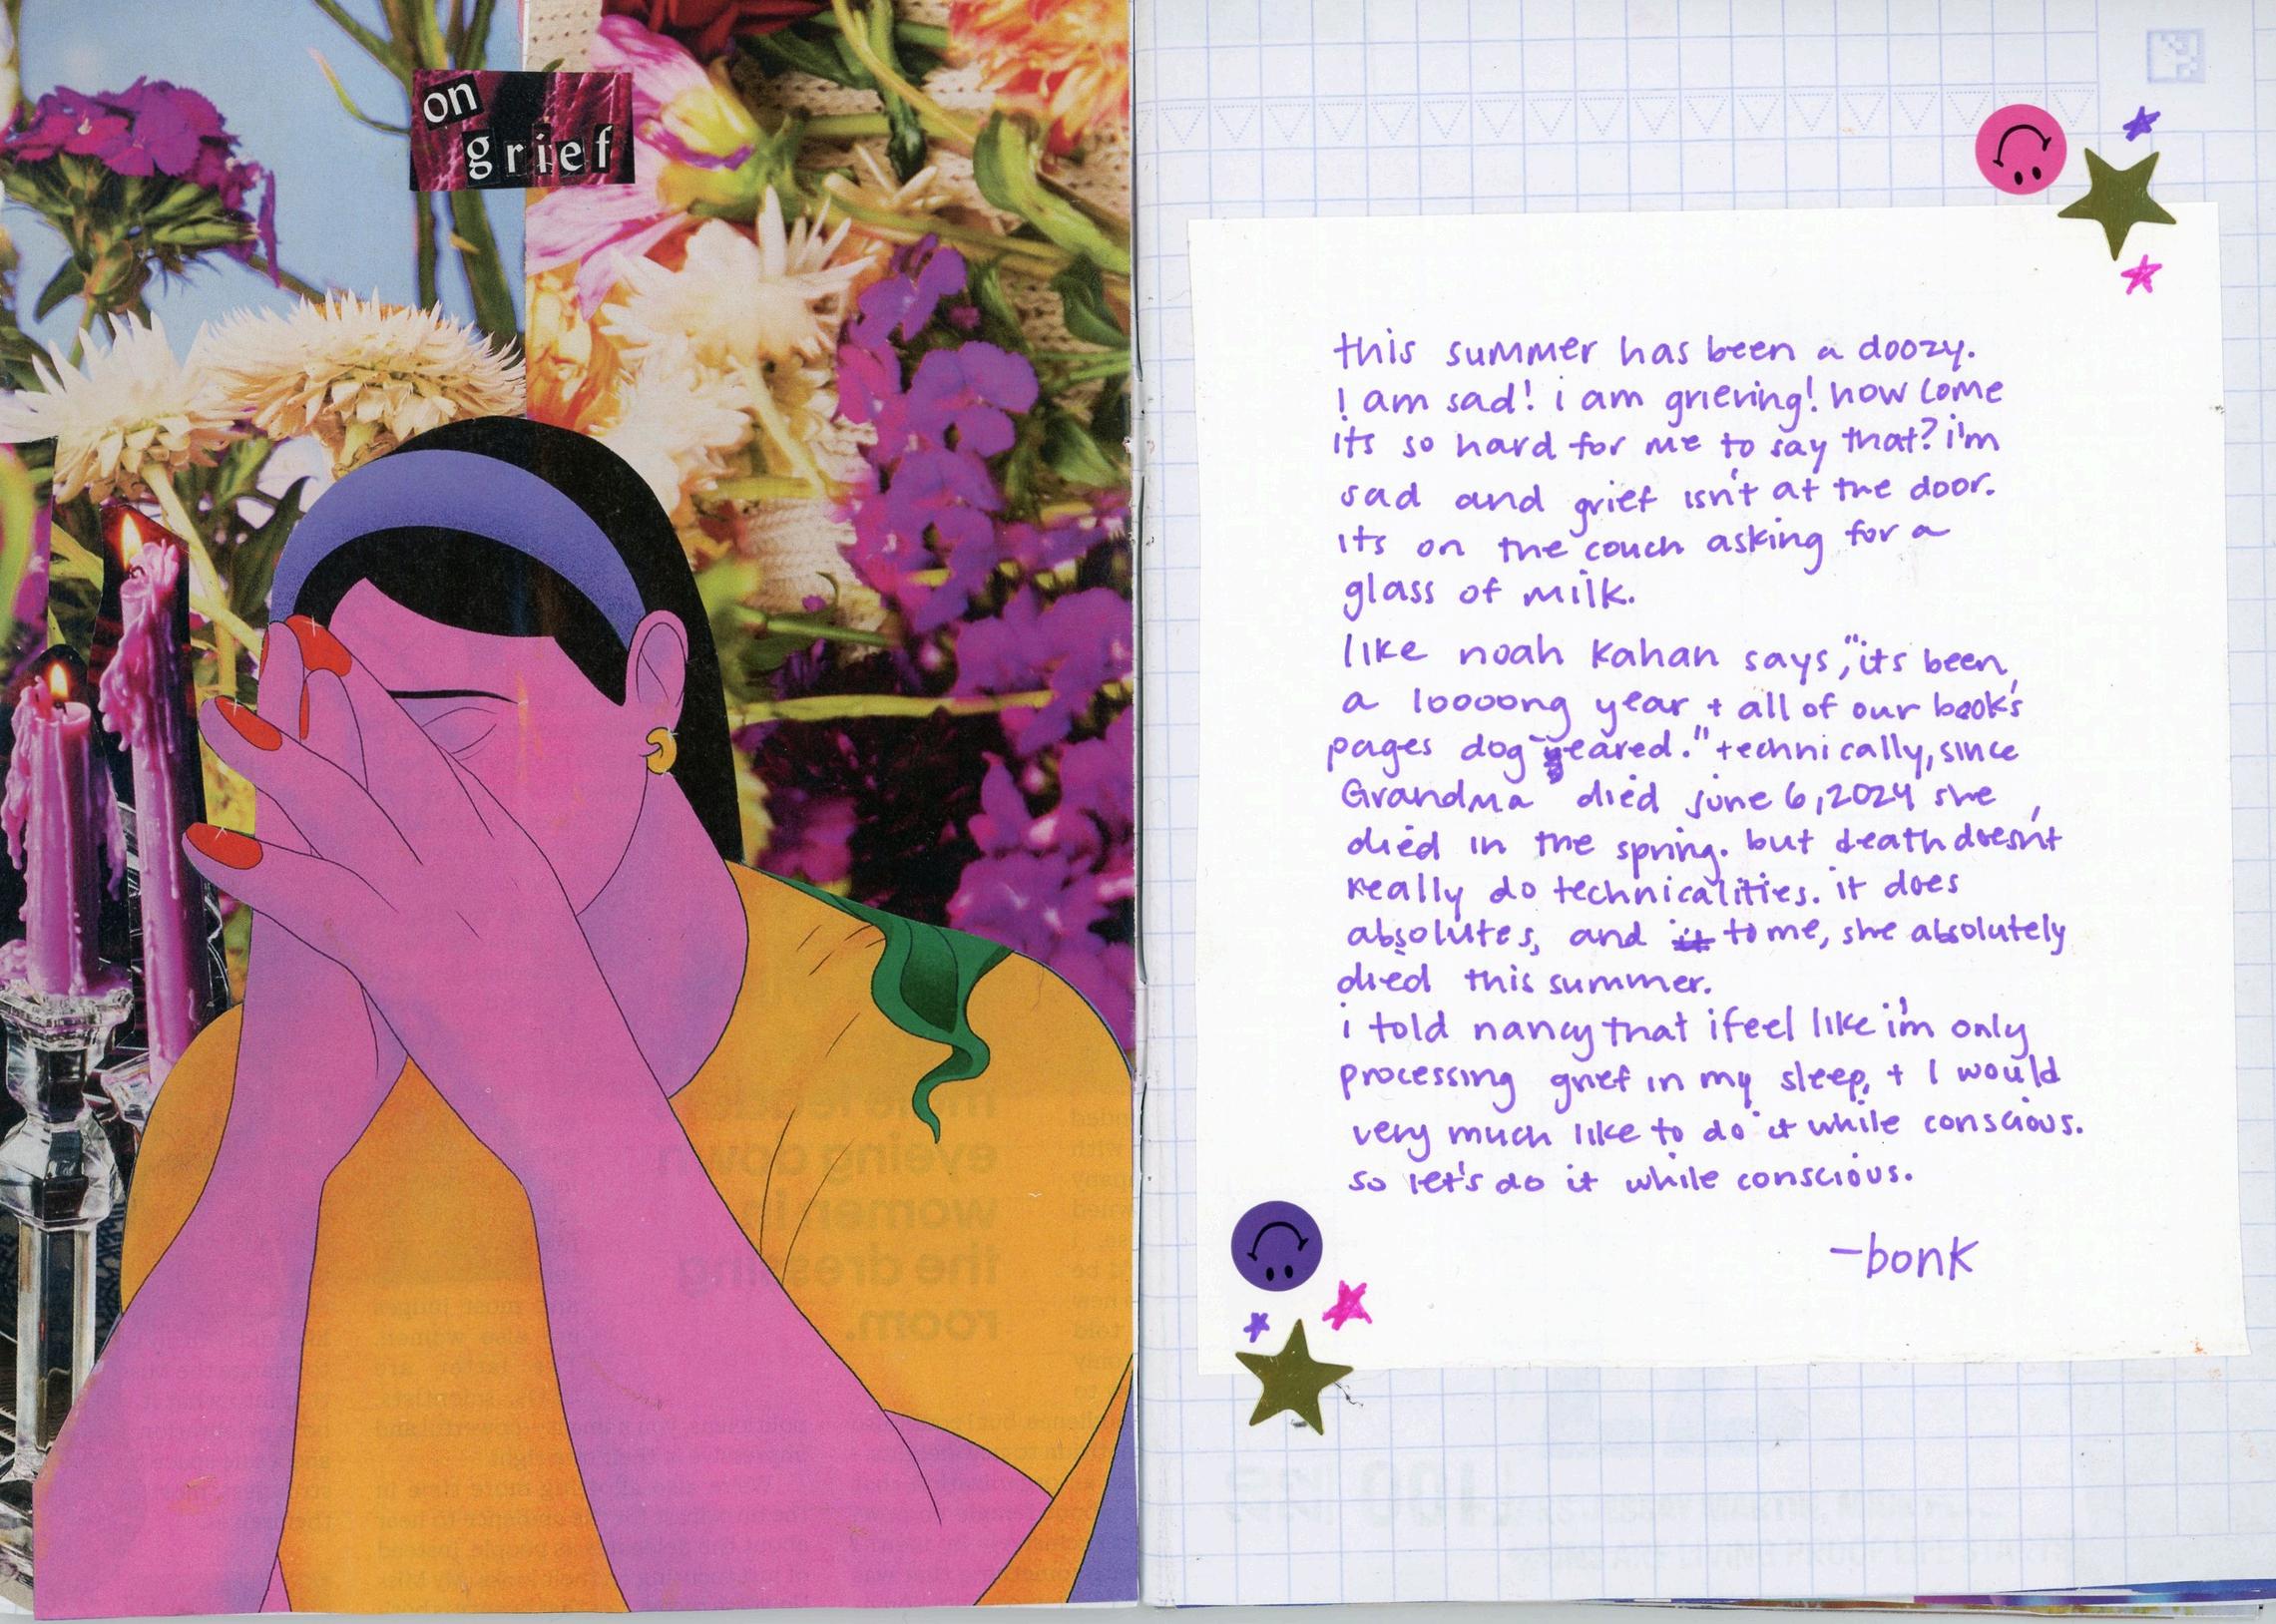 on
grief
this summer has been a doozy.
i am sad! i am grieving! how come
its so hard for me to say that? i'm
sad and grief isn't at the door.
its on the couch asking for a
glass of milk.
like noah kahan says, "its been
a loooong year + all of our book's
pages dog-eared." technically, since
Grandma died june 6, 2024 she
died in the spring. but death doesn't
really do technicalities. it does
absolutes, and it to me, she absolutely
died this summer.
i told nancy that i feel like i'm only
processing grief in my sleep, + I would
very much like to do it while conscious.
so let's do it while conscious.
-bonk
eyeing
women in
the dressing
room.